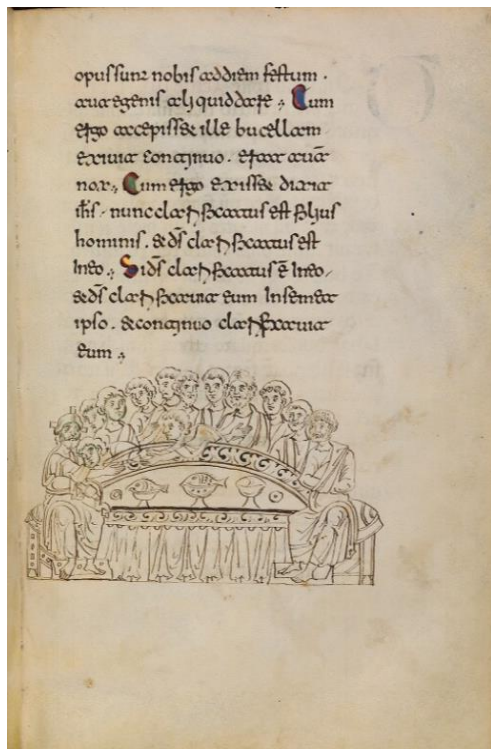 opus sunt nobis ad diem festum .
aut egenis aliquid daret ; Cum
ergo accepisset ille bucellam
exivit continuo . erat autē
nox ; Cum ergo exisset dixit
ih̄s . nunc clarificatus est filius
hominis . & d̄s clarificatus est
in eo ; Si d̄s clarificatus ē in eo .
& d̄s clarificavit eum in semet
ipso . & continuo clarificavit
eum ;